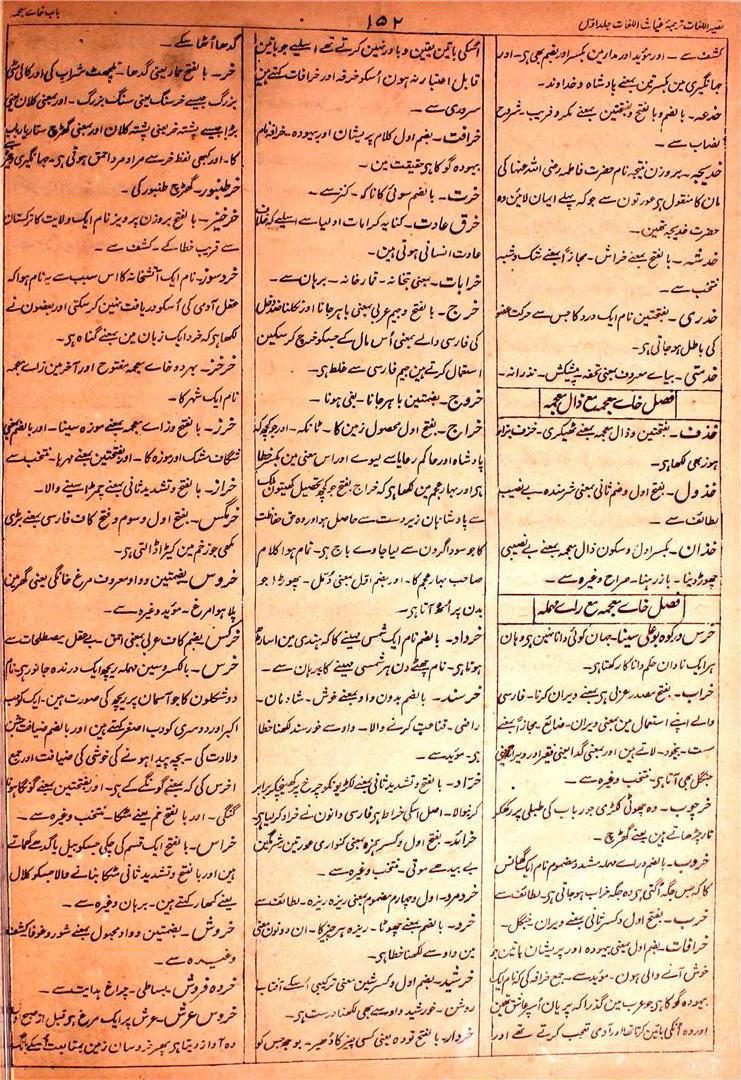 باب خاے معجمہ
۱۵۲
نصیر اللغات ترجمۂ غیاث اللغات جلد اول
کشف سے ۔ اور مؤید اور مدار مین بکسر اور بضم بھی ہر ۔ اور
جہانگیری مین بکسرتین بمعنے بادشاہ و خداوند ۔
خدعہ ۔ بالضم و بالفتح و بفتحتین بمعنے مکر و فریب ۔ شروح
نصاب سے ۔
خدیجہ ۔ بروزن نتیجہ نام حضرت فاطمہ رضی اللہ عنہا کی
مان کا منقول ہر عورتون سے جو کہ پہلے ایمان لائین وہ
حضرت خدیجہ تھین ۔
خدشہ ۔ بالفتح بمعنے خراش ۔ مجازاً بمعنے شک و شبہ
منتخب سے ۔
خدری ۔ بفتحتین نام ایک درد کا جس سے حرکت عضو
کی باطل ہو جاتی ہر ۔
خدمتی ۔ بیاے معروف بمعنی تحفہ ۔ پیشکش ۔ نذرانہ ۔
فصل خاے معجمہ مع ذال معجمہ
خذف ۔ بفتحتین و ذال معجمہ بمعنے ٹھیکری ۔ خزف بزاء
ہوز بھی لکھا ہر ۔
خذول ۔ بفتح اول و ضم ثانی بمعنی شرمندہ بے نصیب
لطائف سے ۔
خذلان ۔ بکسر اول و سکون ذال معجمہ بمعنے بے نصیبی
چھوڑ دینا ۔ باز رہنا ۔ صراح وغیرہ سے ۔
فصل خاے معجمہ مع راے مہملہ
خرس در کوہ بو علی سینا ۔ جہان کوئی دانا نہین ہر وہان
ہر ایک نادان حکم دانا کا رکھتا ہر ۔
خراب ۔ بفتح مصدر عزلی ہر بمعنے ویران کرنا ۔ فارسی
والے اپنے استعمال مین بمعنی ویران ۔ ضائع ۔ مجازاً بمعنے
مست ۔ بیخود ۔ لاتے ہین اور بمعنی گدا یعنی فقیر اور ویرانہ یعنی
جنگل بھی آتا ہر ۔ منتخب وغیرہ سے ۔
خرچوب ۔ وہ چھوٹی لکڑی جو رباب کی طبلی پر رکھکر
تار چڑھاتے ہین یعنے گھڑچ ۔
خروب ۔ بالضم و راے مہملہ مشدد مضموم نام ایک گھانس
کا کہ جس جگہ اُگتی ہر وہ جگہ خراب ہو جاتی ہر ۔ لطائف سے
خرب ۔ بفتح اول و کسر ثانی بمعنے ویران جنگل ۔
خرافات ۔ بضم اول بمعنی بیہودہ اور پریشان باتین جو
خوش آنے والی ہون ۔ مؤید سے ۔ جمع خرافہ کی کہ نام ایک
بیہودہ گو کا ہر جو عرب مین گذرا کہ پریان اُسپر عاشق تھین
اور وہ اُنکی باتین کرتا تھا اور آدمی تعجب کرتے تھے اور
اُسکی باتین یقین و باور نہین کرتے تھے اسلیے جو باتین
قابل اعتبار نہ ہون اُسکو خرفہ اور خرافات کہتے ہین
سروری سے ۔
خرافت ۔ بضم اول کلام پریشان اور بیہودہ ۔ خرافہ نام
بیہودہ گو کا ہر حقیقت مین ۔
خرت ۔ بالضم سوئی کا ناکا ۔ کنز سے ۔
خرق عادت ۔ کنایہ کرامات اولیا سے اسلیے کہ خلاف
عادت انسانی ہوتی ہین ۔
خرابات ۔ بمعنی بتخانہ ۔ قمارخانہ ۔ برہان سے ۔
خرج ۔ بالفتح و جیم عربی بمعنی باہر جانا اور نکلنا ضد دخل
کی فارسی والے بمعنی اُس مال کے جسکو خرچ کر سکین
استعمال کرتے ہین جیم فارسی سے غلط ہر ۔
خروج ۔ بضمتین باہر جانا ۔ یعنی ہونا ۔
خراج ۔ بفتح اول محصول زمین کا ۔ ٹانکہ ۔ اور جو کچھ کہ
بادشاہ اور حاکم رعایا سے لیوے اور اس معنی مین بکسر خطا
ہر اور بہار عجم مین لکھا ہر کہ خراج بفتح جو کچھ تحصیل کھیتون تک
سے بادشاہان زیردست سے حاصل ہو اور وہ حق حفاظت
کا جو سوداگرون سے لیا جاوے باج ہر ۔ تمام ہوا کلام
صاحب بہار عجم کا ۔ اور بضم اول بمعنی دُنبل ۔ پھوڑا جو
بدن پر اُٹھ آتا ہر ۔
خرداد ۔ بالضم نام ایک شمسی مہینے کا کہ ہندی مین اساڑھ
ہوتا ہر ۔ نام چھٹے دن ہر شمسی مہینے کا برہان سے ۔
خرسند ۔ بالضم بدون واو بمعنے خوش ۔ شادمان ۔
راضی ۔ قناعت کرنے والا ۔ واو سے خورسند لکھنا خطا
ہر ۔ مؤید سے ۔
خرّاد ۔ بالفتح و تشدید ثانی بمعنے لکڑیونکو چرخ پر کھینچکر برابر
کرنیوالا ۔ اصل اسکی خراط ہر فارسی دانون نے خراد کر لیا ہر ۔
خرائد ۔ بفتح اول و کسر ہمزہ بمعنی کنواری عورتین شرمگین
بے بیدھے موتی ۔ منتخب وغیرہ سے ۔
خرد مرد ۔ اول و چہارم مضموم بمعنی ریزہ ریزہ ۔ لطائف سے
خرد ۔ بالضم بمعنے چھوٹا ۔ ریزہ ہر چیز کا ۔ ان دونون معنی
مین واو سے لکھنا خطا ہر ۔
خرشید ۔ بضم اول و کسر شین بمعنی ترکیبی اُسکے آفتاب
روشن ۔ خورشید واو سے بھی لکھنا درست ہر ۔
خردار ۔ بالفتح تودہ یعنی کسی چیز کا ڈھیر ۔ بوجھ جس کو
گدھا اُٹھا سکے ۔
خر ۔ بالفتح حمار یعنی گدھا ۔ تلچھٹ شراب کی اور کالی مٹی
بزرگ جیسے خرسنگ یعنی سنگ بزرگ ۔ اور بمعنی کلان یعنی
بڑا جیسے پشتہ خر یعنی پشتہ کلان اور بمعنی گھڑچ ستار یا رباب
کا ۔ اور کبھی لفظ خر سے مراد مرد احمق ہوتی ہر ۔ جہانگیری وغیرہ سے
خر طنبور ۔ گھڑچ طنبور کی ۔
خرخیز ۔ بالفتح بروزن پرویز نام ایک ولایت کا ترکستان
سے قریب خطا کے ۔ کشف سے ۔
خرد سوز ۔ نام ایک آتشخانہ کا اس سبب سے یہ نام ہوا کہ
عقل آدمی کی اُسکو دریافت نہین کر سکتی اور بعضون نے
لکھا ہر کہ خرد ایک زبان مین بمعنے گناہ ہر ۔
خرخز ۔ بہر دو خاے معجمہ مفتوح اور آخر مین زاے معجمہ
نام ایک شہر کا ۔
خرز ۔ بالفتح و زاے معجمہ بمعنے موزہ سینا ۔ اور بالضم بمعنی
شگاف مشک اور موزہ کا ۔ اور بفتحتین بمعنے مہرہا ۔ منتخب سے
خراز ۔ بالفتح و تشدید ثانی بمعنے چمڑا سینے والا ۔
خرمگس ۔ بفتح اول و سوم و فتح کاف فارسی بمعنے بڑی
مکھی جو زخم مین کیڑا ڈالتی ہر ۔
خروس بضمتین و واو معروف مرغ خانگی یعنی گھر مین
پلا ہوا مرغ ۔ مؤید وغیرہ سے ۔
خرکس بضم کاف عربی بمعنی احمق ۔ بے عقل ۔ مصطلحات سے
خرس ۔ بالکسر و سین مہملہ ریچھ ایک درندہ جانور ہر ۔ نام
دو شکلون کا جو آسمان پر ریچھ کی صورت ہین ۔ ایک کو دب
اکبر اور دوسری کو دب اصغر کہتے ہین اور بالضم ضیافت جشن
ولادت کی ۔ بچہ پیدا ہونے کی خوشی کی ضیافت اور جمع
اخرس کی کہ بمعنے گونگے کے ہر ۔ اور بفتحتین بمعنے گونگا ہونا
گنگی ۔ اور بالفتح خم یعنے مٹکا ۔ منتخب وغیرہ سے ۔
خراس ۔ بالفتح ایک قسم کی چکی جسکو بیل یا گدھے گھماتے
ہین اور بالفتح و تشدید ثانی مٹکا بنانے والا جسکو کلال
یعنے کمھار کہتے ہین ۔ برہان وغیرہ سے ۔
خروش ۔ بضمتین و واو مجہول بمعنے شور و غوغا کشف
وغیرہ سے ۔
خردہ فروش ۔ بساطی ۔ چراغ ہدایت سے ۔
خروس عرش ۔ عرش پر ایک مرغ ہر قبل از صبح اول
وہ آواز دیتا ہر پھر خروسان زمین بمتابعت اُسکے بانگ